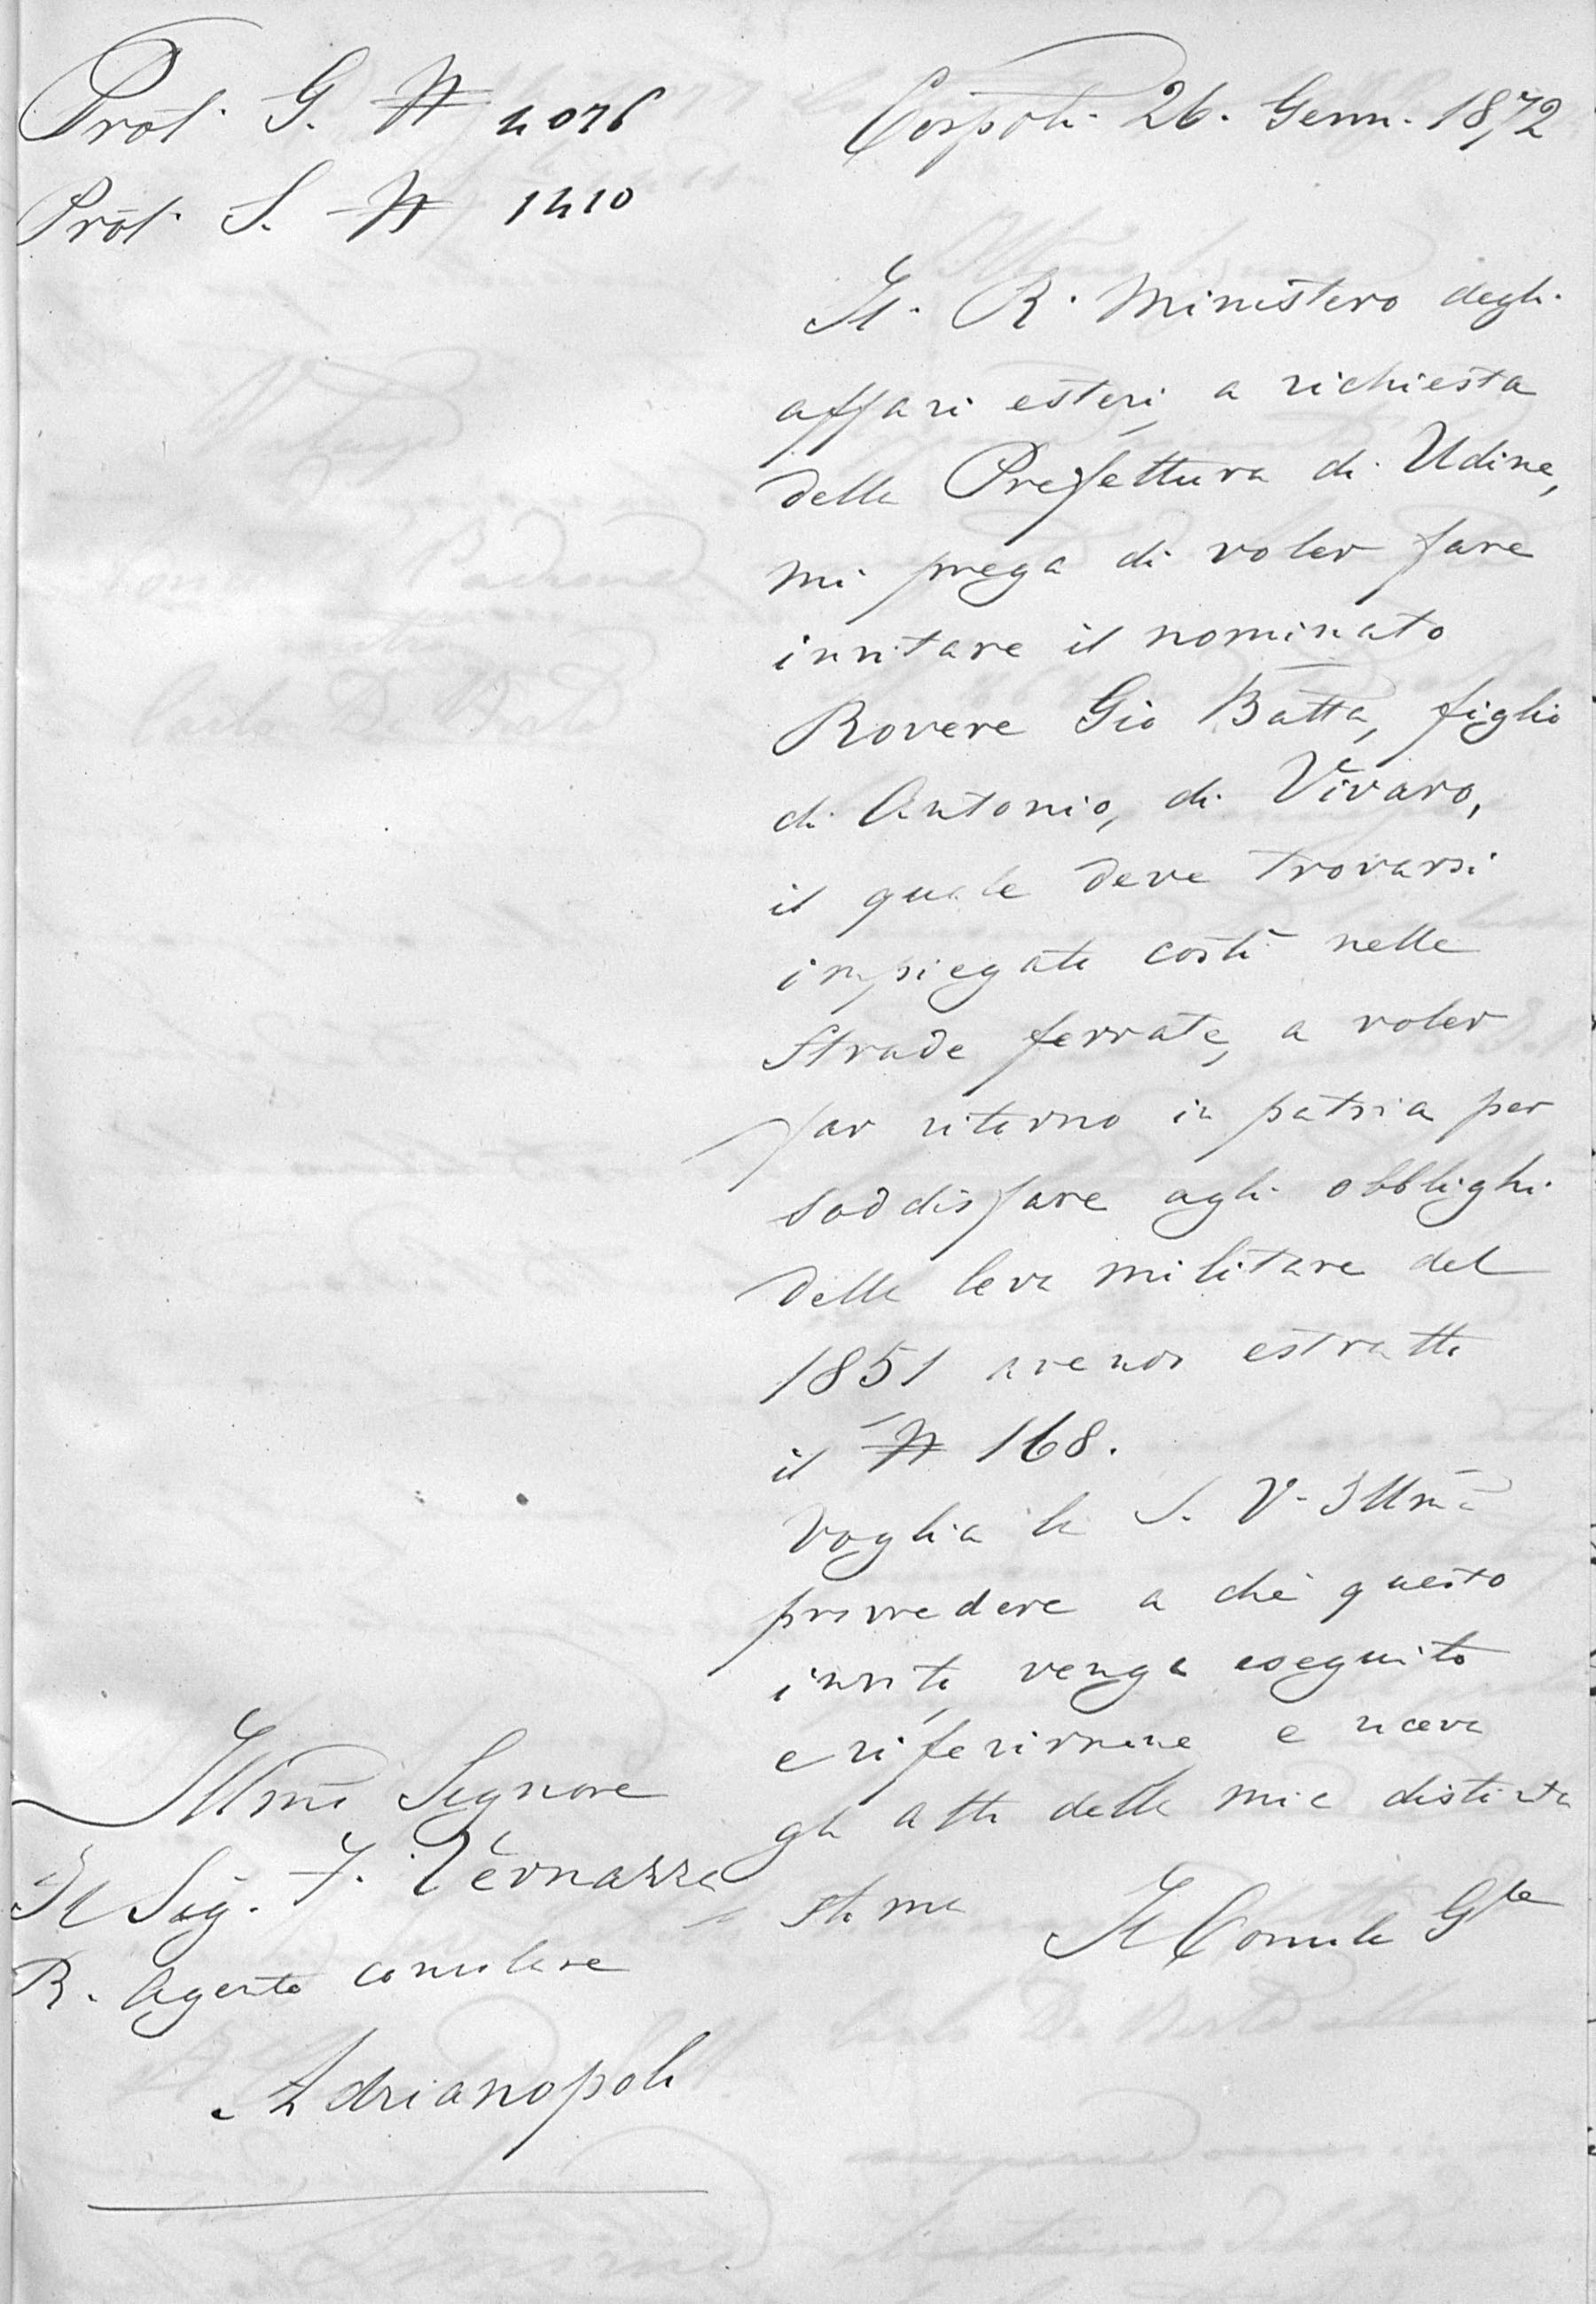 Prot. G. N 4076
Prot. S. N 1410
Cospoli 26. Genn. 1872
Il R. Ministero degli
affari esteri, a richiesta
della Prefettura di Udine,
mi prega di voler fare
invitare il nominato
Rovere Gio Batta, figlio
di Antonio, di Vivaro,
il quale deve trovarsi
impiegato costì nelle
Strade ferrate, a voler
far ritorno in patria per
soddisfare agli obblighi
della leva militare del
1851 avendo estratto
il N 168.
Voglia la S. V. Illma
provvedere a chè questo
invito venga eseguito
e riferirmene, e riceva
gli atti della mia distinta
stima
Il Console Gle
Illmo Signore
Il Sig. F. Vernazza
R. Agente consolare
Adrianopoli